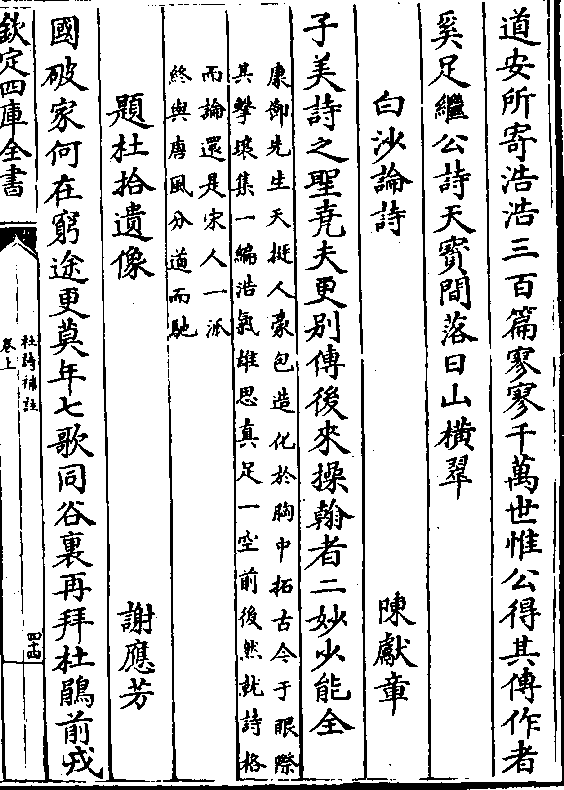 道安所寄浩浩三百篇寥寥千萬世惟公得其傳作者
奚足繼公詩天寳間落日山橫翠
白沙論詩
陳獻章
子美詩之聖堯夫更别傳後來操翰者二妙少能全
康節先生天挺人豪包造化於胸中拓古今于眼際
其擊壤集一編浩氣雄思真足一空前後然就詩格
而論還是宋人一派
終與唐風分道而馳
題杜拾遺像
謝應芳
國破家何在窮途更莫年七歌同谷裏再拜杜鵑前戎
欽定四庫全書
杜詩補註
卷上
四十四